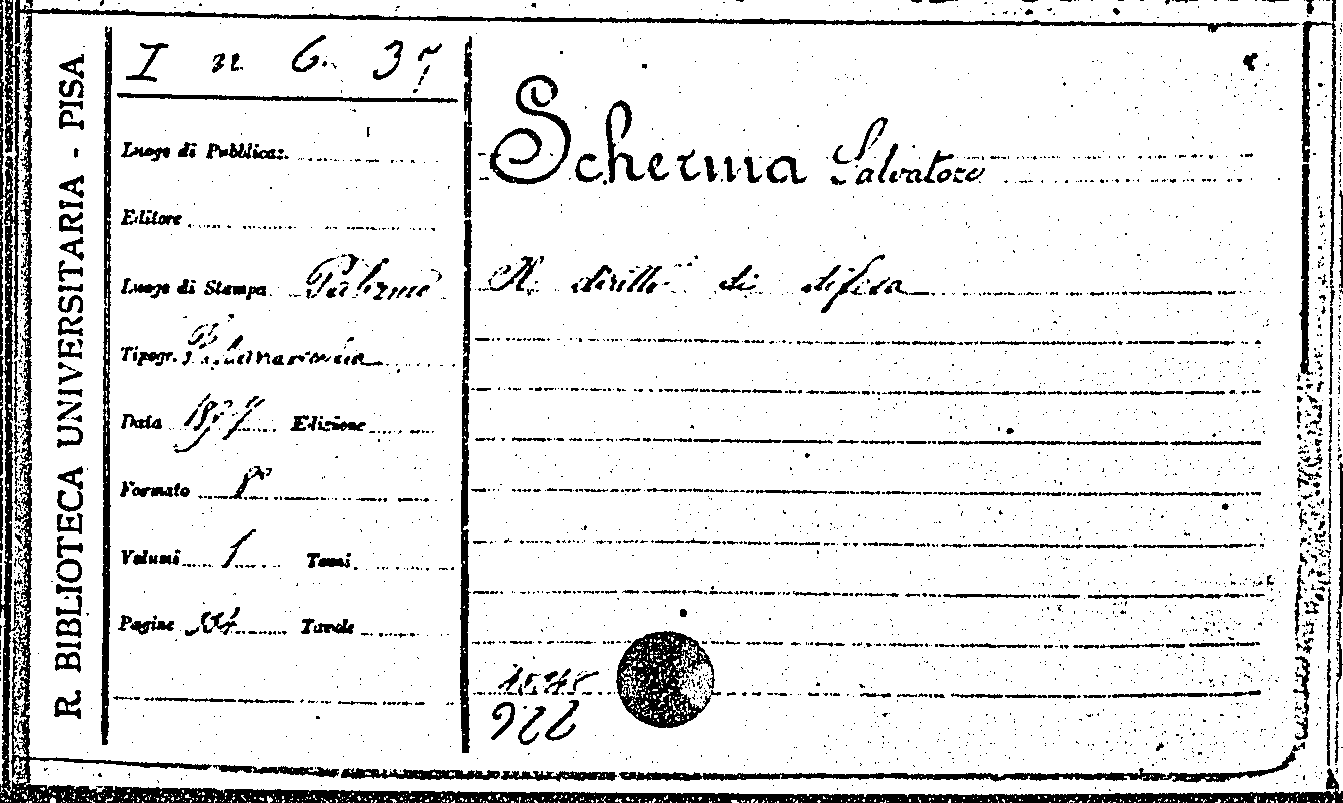 R. BIBLIOTECA UNIVERSITARIA - PISA
I n 6. 37
Luogo di Pubblicaz.
Editore
Luogo di Stampa Palermo
Tipogr.
Data 1877 Edizione
Formato 8°
Volumi 1 Tomi
Pagine Tavole
Scherma Salvatore
Il diritto di difesa
922